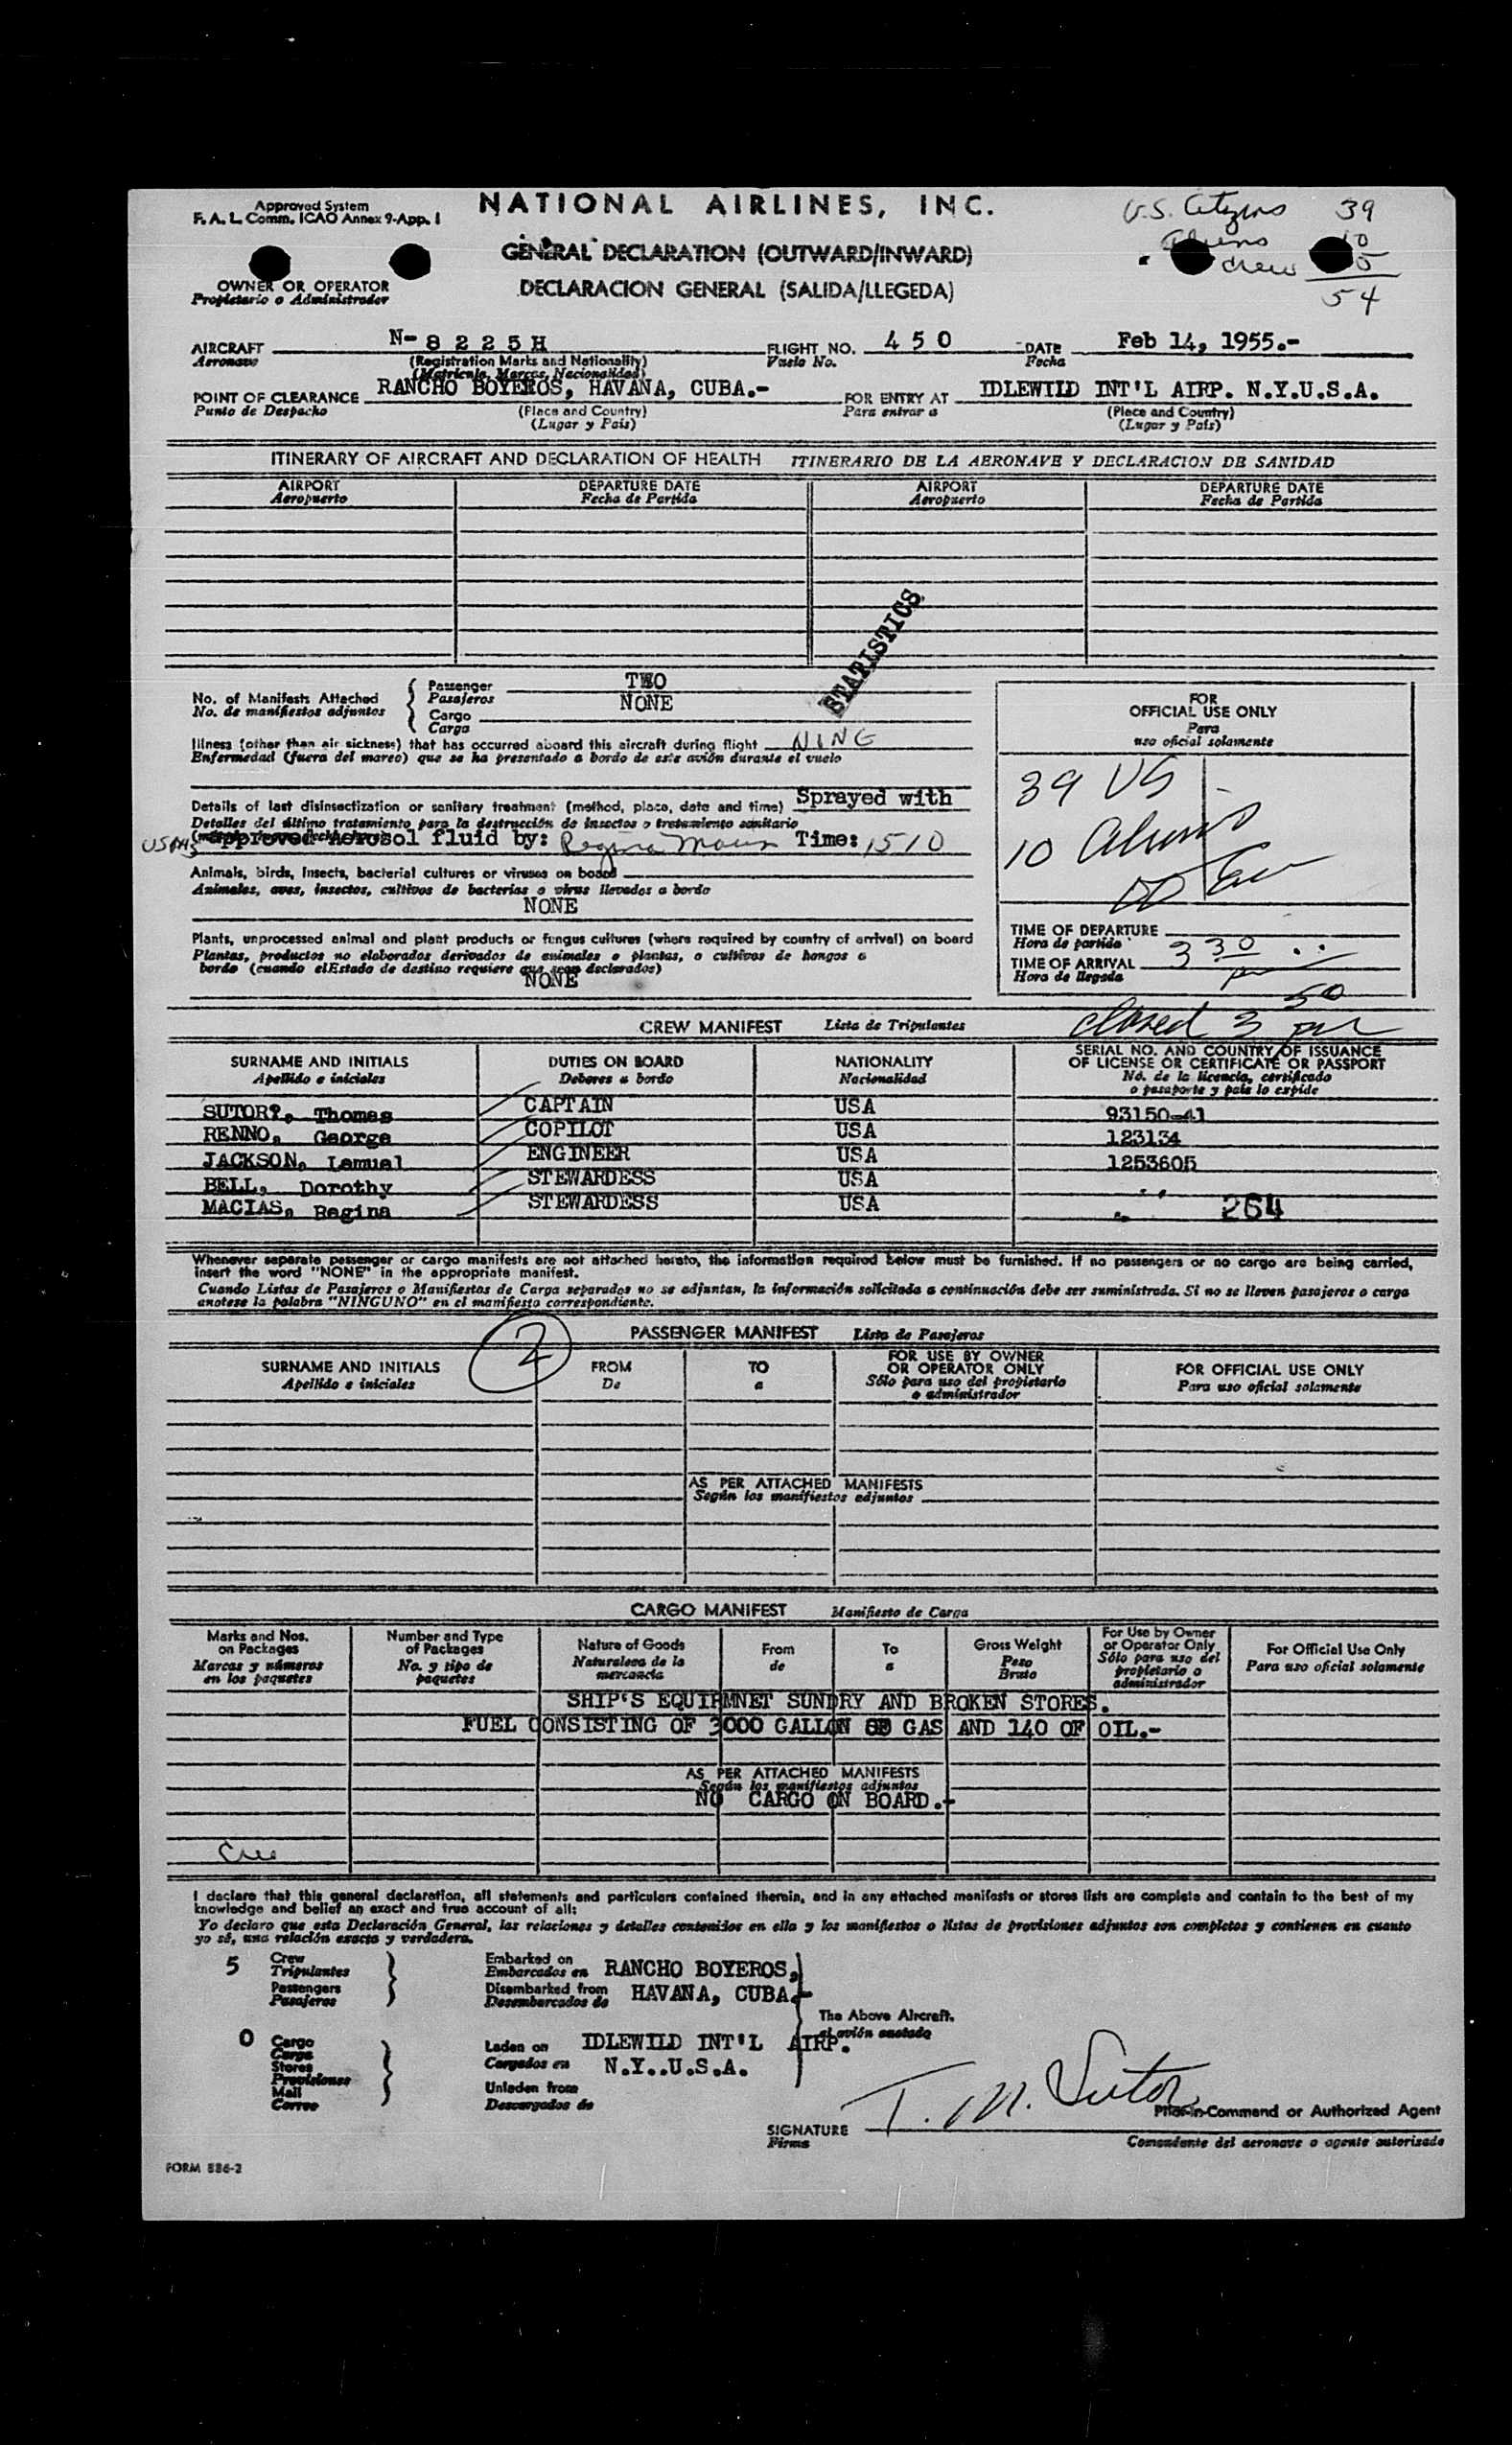 Approved System
F. A. L. Comm. ICAO Annex 9-App. I
NATIONAL AIRLINES, INC.
U.S. Citizens 39
Aliens 10
crew 5
54
GENERAL DECLARATION (OUTWARD/INWARD)
DECLARACION GENERAL (SALIDA/LLEGEDA)
OWNER OR OPERATOR
Propietario o Administrador
AIRCRAFT N-8225H FLIGHT NO. 450 DATE Feb 14, 1955.-
Aeronave (Registration Marks and Nationality) Vuelo No. Fecha
(Matricula, Marcas, Nacionalidad)
POINT OF CLEARANCE RANCHO BOYEROS, HAVANA, CUBA.- FOR ENTRY AT IDLEWILD INT'L AIRP. N.Y.U.S.A.
Punto de Despacho (Place and Country) Para entrar a (Place and Country)
(Lugar y País) (Lugar y País)
ITINERARY OF AIRCRAFT AND DECLARATION OF HEALTH ITINERARIO DE LA AERONAVE Y DECLARACION DE SANIDAD
AIRPORT DEPARTURE DATE AIRPORT DEPARTURE DATE
Aeropuerto Fecha de Partida Aeropuerto Fecha de Partida
STATISTICS
No. of Manifests Attached Passenger TWO
No. de manifiestos adjuntos Pasajeros NONE
Cargo
Carga
Illness (other than air sickness) that has occurred aboard this aircraft during flight NONE
Enfermedad (fuera del mareo) que se ha presentado a bordo de este avión durante el vuelo
Details of last disinsectization or sanitary treatment (method, place, date and time) Sprayed with
Detalles del último tratamiento para la destrucción de insectos o tratamiento sanitario
USPHS approved Aerosol fluid by: Regina Macias Time: 1510
Animals, birds, insects, bacterial cultures or viruses on board
Animales, aves, insectos, cultivos de bacterias o virus llevados a bordo
NONE
Plants, unprocessed animal and plant products or fungus cultures (where required by country of arrival) on board
Plantas, productos no elaborados derivados de animales o plantas, o cultivos de hongos a
bordo (cuando elEstado de destino requiere que sean declarados)
NONE
FOR
OFFICIAL USE ONLY
Para
uso oficial solamente
39 US
10 Aliens
TIME OF DEPARTURE
Hora de partida
TIME OF ARRIVAL 3 30 pm
Hora de llegada
closed 3 50 pm
CREW MANIFEST Lista de Tripulantes
SURNAME AND INITIALS DUTIES ON BOARD NATIONALITY SERIAL NO. AND COUNTRY OF ISSUANCE
OF LICENSE OR CERTIFICATE OR PASSPORT
Apellido e iniciales Deberes a bordo Nacionalidad No. de la licencia, certificado
o pasaporte y pais lo expide
SUTOR, Thomas CAPTAIN USA 93150-41
RENNO, George COPILOT USA 123134
JACKSON, Lemuel ENGINEER USA 1253605
BELL, Dorothy STEWARDESS USA
MACIAS, Regina STEWARDESS USA 264
Whenever separate passenger or cargo manifests are not attached hereto, the information required below must be furnished. If no passengers or no cargo are being carried,
insert the word "NONE" in the appropriate manifest.
Cuando Listas de Pasajeros o Manifiestos de Carga separados no se adjuntan, la información solicitada a continuación debe ser suministrada. Si no se lleven pasajeros o carga
anotese la palabra "NINGUNO" en el manifiesto correspondiente.
2
PASSENGER MANIFEST Lista de Pasajeros
SURNAME AND INITIALS FROM TO FOR USE BY OWNER OR OPERATOR ONLY FOR OFFICIAL USE ONLY
Apellido e iniciales De a Sólo para uso del propietario o administrador Para uso oficial solamente
AS PER ATTACHED MANIFESTS
Según los manifiestos adjuntos
CARGO MANIFEST Manifiesto de Carga
Marks and Nos. on Packages Number and Type of Packages Nature of Goods From To Gross Weight For Use by Owner or Operator Only For Official Use Only
Marcas y números en los paquetes No. y tipo de paquetes Naturaleza de la mercancía de a Peso Bruto Sólo para uso del propietario o administrador Para uso oficial solamente
SHIP'S EQUIPMNET SUNDRY AND BROKEN STORES.
FUEL CONSISTING OF 3000 GALLON GAS AND 140 OF OIL.-
AS PER ATTACHED MANIFESTS
Según los manifiestos adjuntos
NO CARGO ON BOARD.-
I declare that this general declaration, all statements and particulars contained therein, and in any attached manifests or stores lists are complete and contain to the best of my
knowledge and belief an exact and true account of all:
Yo declaro que esta Declaración General, las relaciones y detalles contenidos en ella y los manifiestos o listas de provisiones adjuntos son completos y contienen en cuanto
yo sé, una relación exacta y verdadera.
5 Crew Embarked on
Tripulantes Embarcados en RANCHO BOYEROS,
Passengers Disembarked from HAVANA, CUBA.-
Pasajeros Desembarcados de
The Above Aircraft.
el avión anotado
0 Cargo Laden on IDLEWILD INT'L AIRP.
Carga Cargados en N.Y..U.S.A.
Stores
Provisiones
Mail Unladen from
Correo Descargados de
SIGNATURE T. M. Sutor Pilot-in-Command or Authorized Agent
Firma Comandante del aeronave o agente autorizado
FORM 886-2